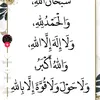 سُبْحَانَ اللهِ
وَالْحَمْدُ لِلهِ،
وَلَا إِلَهَ إِلَّا اللهُ،
وَاللهُ أَكْبَرُ
وَلَا حَوْلَ وَلَا قُوَّةَ إِلَّا بِاللهِ